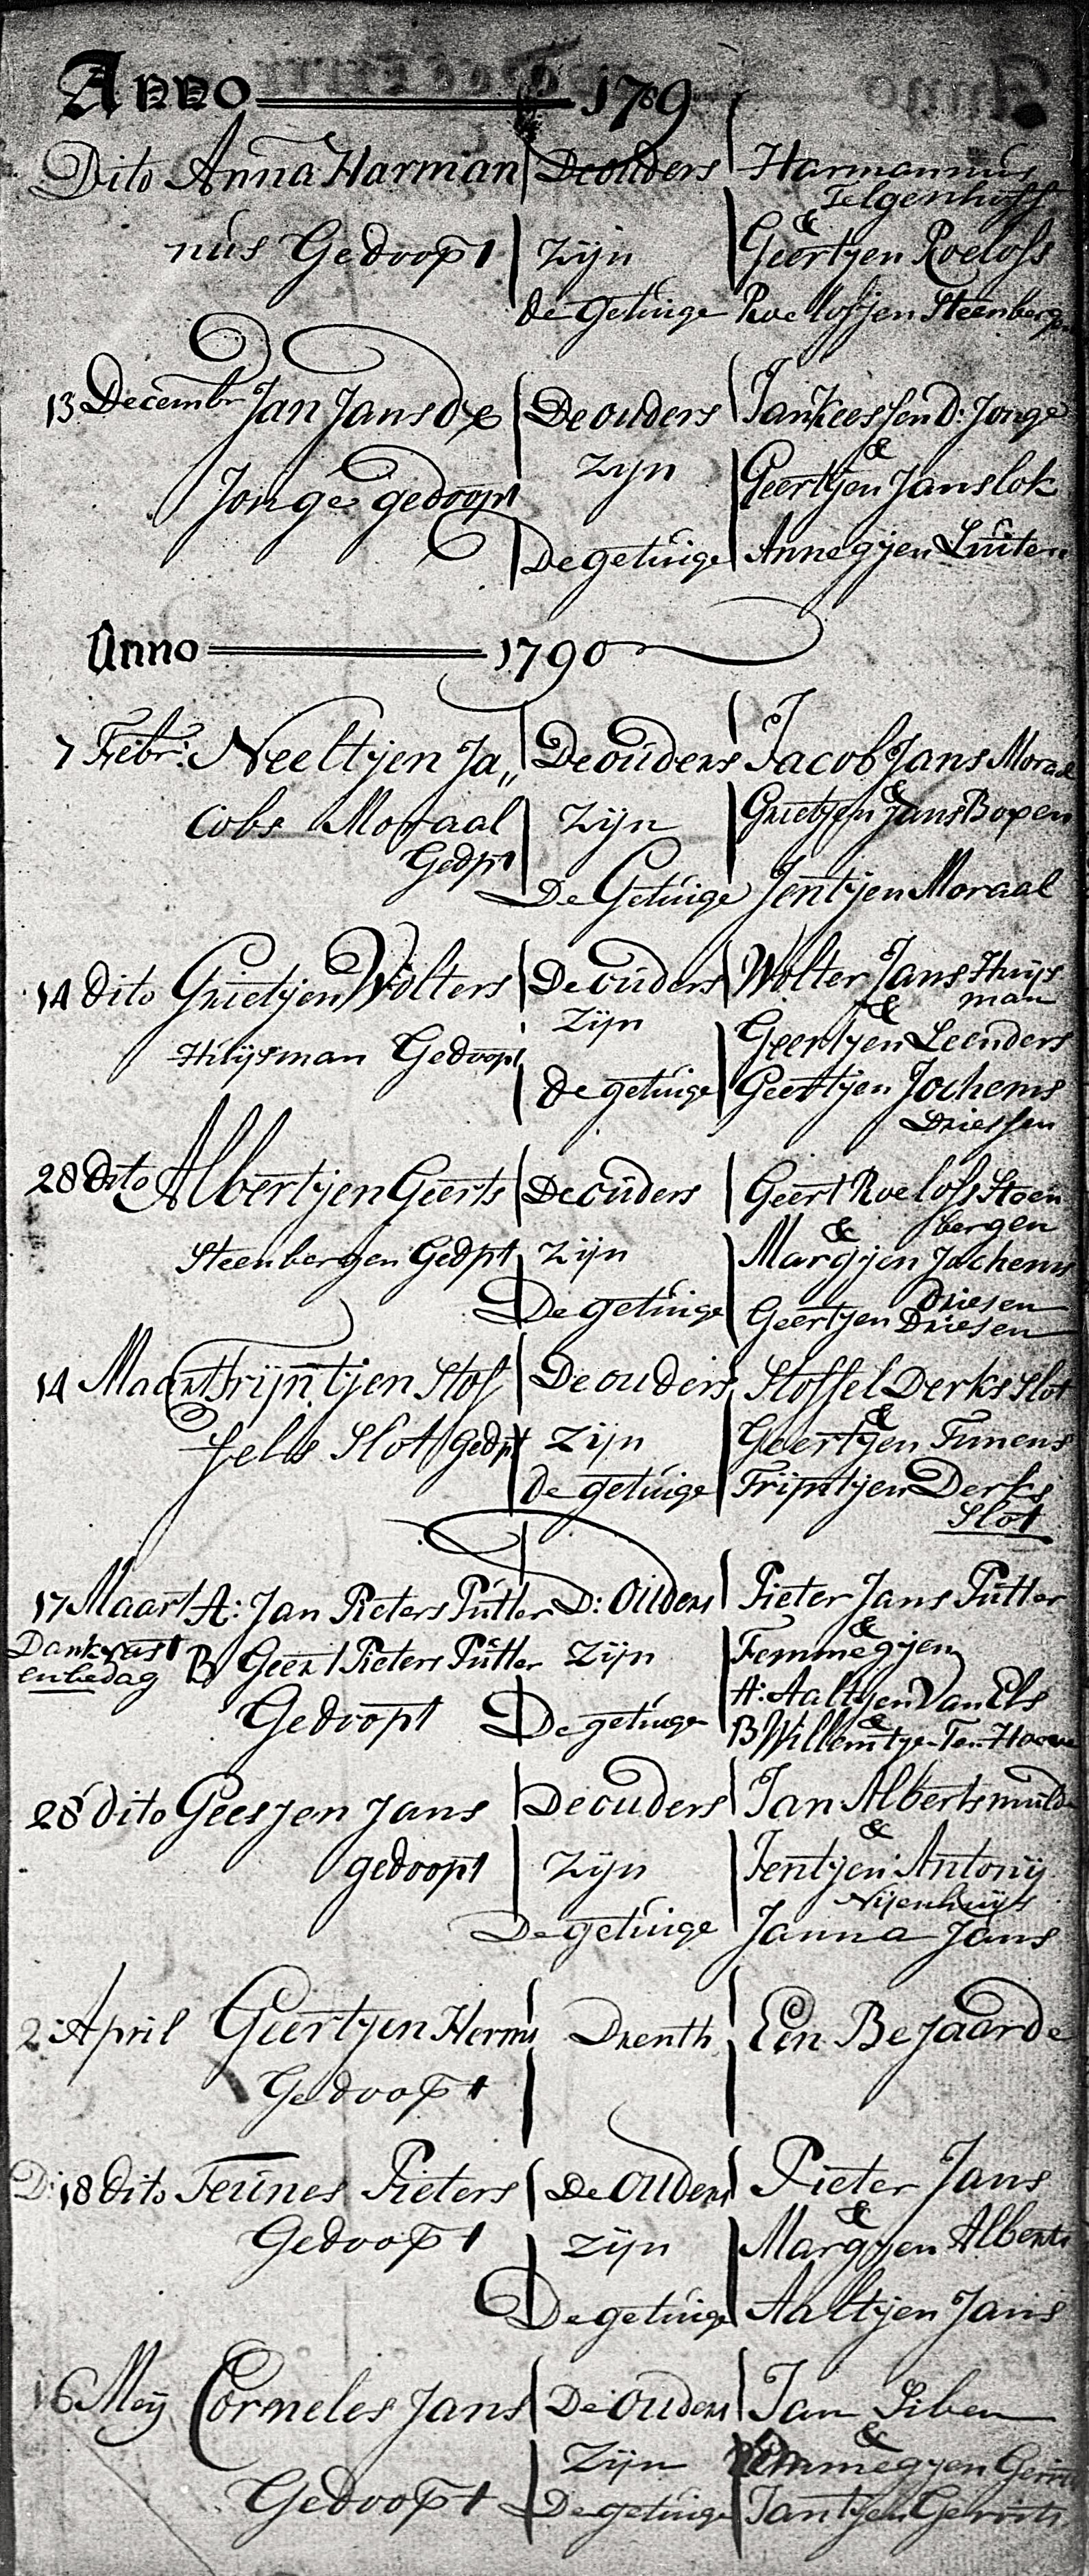 Anno 1789
Dito Anna Harman De ouders Harmannus
Telgenhoff
&
nus Gedoopt zijn Geertjen Roelofs
de getuige Roelofjen Steenbergen
13 Decembr Jan Jans de De ouders Jan Keessen D: Jonge
&
Jonge gedoopt zijn Geertjen Jans lok
De getuige Annegjen Luiten
Anno 1790
7 Febr: Neeltjen Ja,, De ouders Jacob Jans Moraal
&
cobs Moraal zijn Grietjen Jans Boxen
Gedpt
De Getuige Jentjen Moraal
14 dito Grietjen Wolters De ouders Wolter Jans Huijs
man
zijn &
Huijsman Gedoopt Geertjen Leenders
de getuige Geertjen Jochems
Driessen
28 dito Albertjen Geerts De ouders Geert Roelofs Steen
bergen
&
Steenbergen Gedpt zijn Margjen Jochems
Driesen
De getuige Geertjen Driesen
14 Maart Trijntjen Stof De ouders Stoffel Derks Slot
&
fels Slot Gedpt zijn Geertjen
de getuige Trijntjen Derks
Slot
17 Maart A: Jan Pieters Putter D: Ouders Pieter Jans Putter
&
Dank vast B Geert Pieters Putter zijn Femmegjen
en bedag
A: Aaltjen Van Els
&
Gedoopt De getuige B Willemtje Ten
28 dito Geesjen Jans De ouders Jan Alberts mulder
&
gedoopt zijn Jentjen Antonij
Nijenhuijs
De getuige Janna Jans
2 April Geertjen Herms Drenth Een Bejaarde
Gedoopt
D: 18 dito Teunes Pieters De Ouders Pieter Jans
&
Gedoopt zijn Margjen Alberts
De getuige Aaltjen Jans
16 Meij Corneles Jans De Ouders Jan Siben
&
zijn Femmegyen Gerrits
Gedoopt De getuige Jantjen Gerrits